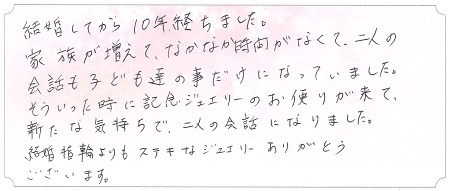 結婚してから10年経ちました。
家族が増えて、なかなか時間がなくて、二人の
会話も子ども達の事だけになっていました。
そういった時に記念ジュエリーのお便りが来て、
新たな気持ちで、二人の会話になりました。
結婚指輪よりもステキなジュエリーありがとう
ございます。